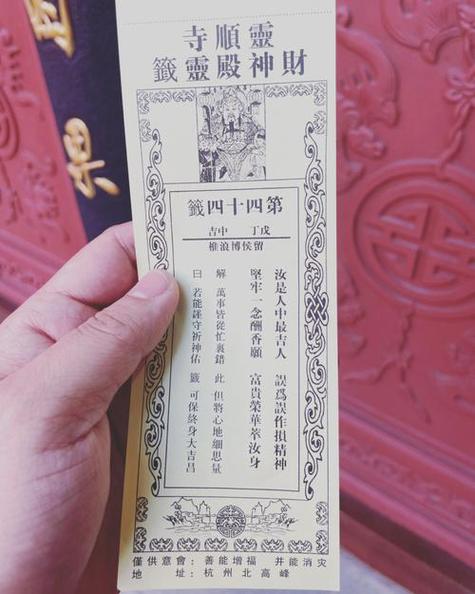 靈順寺
財神殿靈籤
第四十四籤
戊丁 中吉
留侯博浪椎
汝是人中最吉人 誤爲誤作損精神
堅牢一念酬香願 富貴榮華萃汝身
解 萬事皆從忙裏錯 此 但將心地細思量
曰 若能謹守祈神佑 籤 可保終身大吉昌
僅供意會：善能增福 并能消灾
地 址：杭州北高峰
果